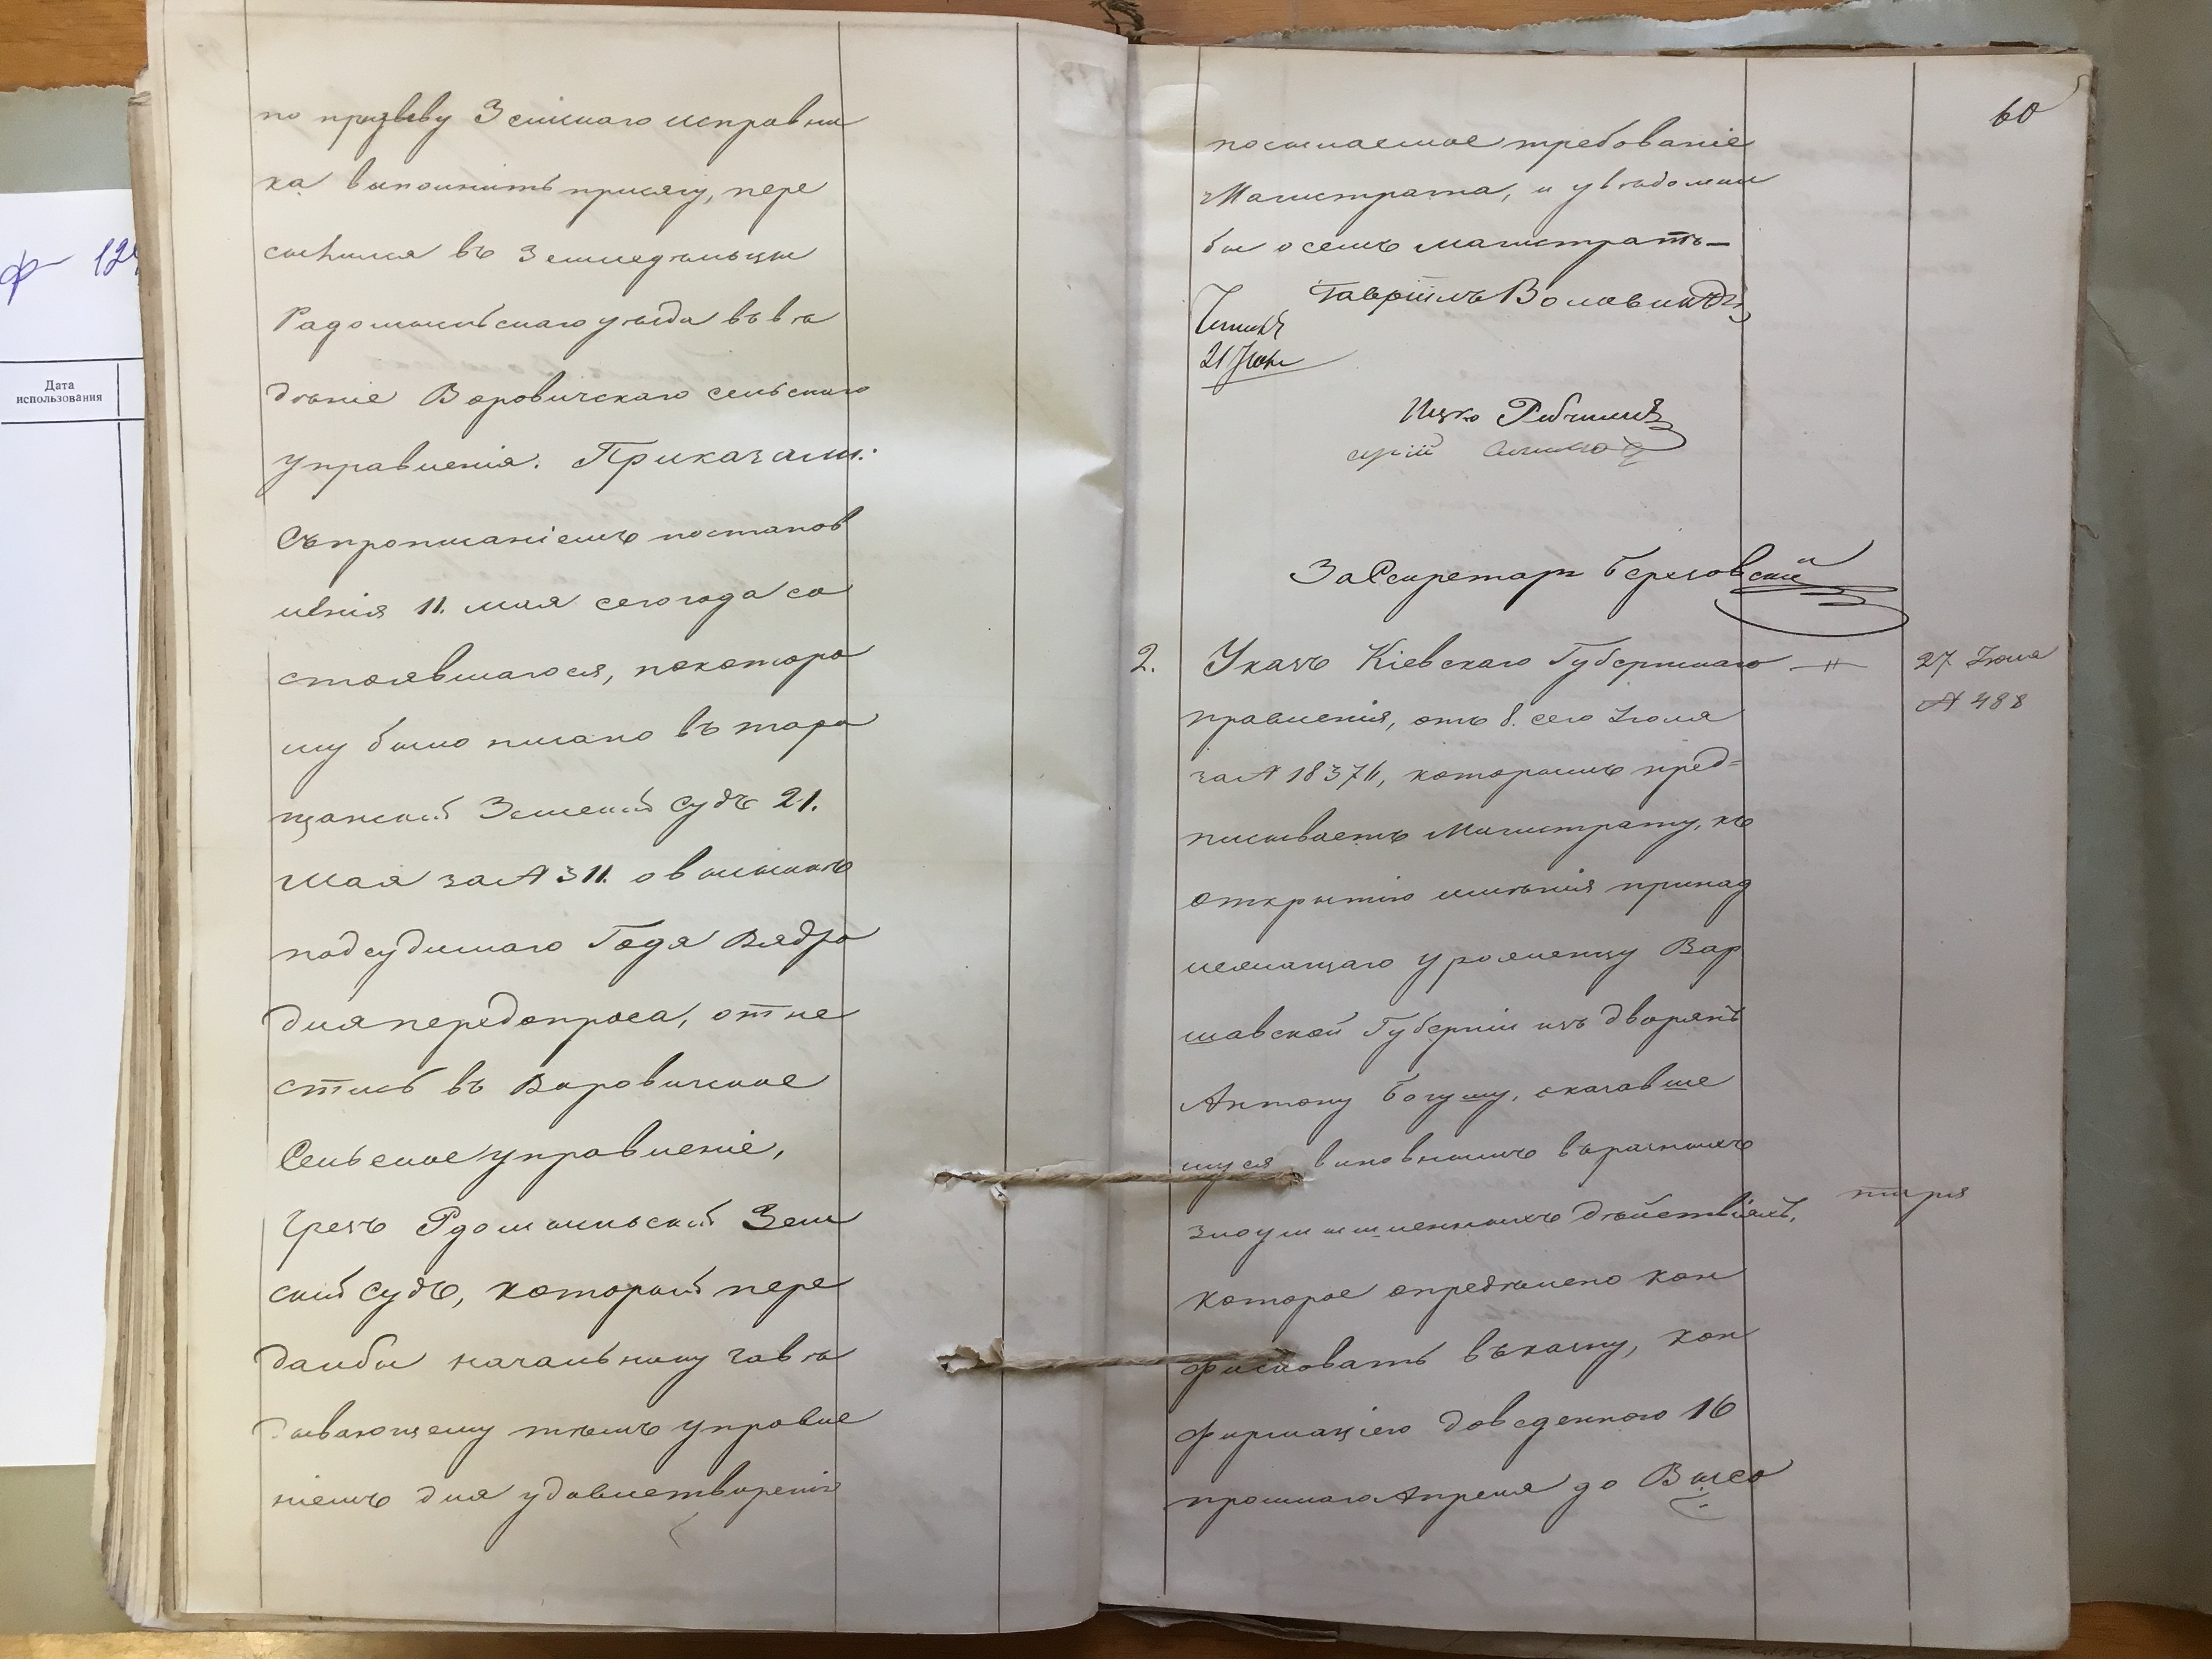 ф 124
Дата
использования
по призыву Земскаго исправни
ка выполнить присягу, пере
селился въ Земледельцы
Радомысльскаго уѣзда въ вѣ
дѣніе Воровичскаго сельскаго
управленія. Приказали:
Съ прописаніемъ постанов
ленія 11. мая сего года со
стоявшагося, по которо
му было писано въ тара
щанскій Земскій Судъ 21.
Мая за № 311. о высылкѣ
подсудимаго Годя Вядро
для передопроса, отне
стись въ Воровичское
Сельское управленіе,
Чрезъ Рдомысльскій Зем
скій Судъ, который пере
далъ бы начальнику завѣ
дывающему тѣмъ управле
ніемъ для удовлетворенія
60
посылаемое требованіе
Магистрата, и увѣдомил
бы о семъ магистратъ—
Гавріилъ
21 Іюня
Ицко
За Секретаря Березовскій
2. Указъ Кіевскаго Губернскаго
27 Іюня
правленія, отъ 8. сего Іюня
№ 488
за № 18376, которымъ пред=
писываетъ Магистрату, къ
открытію имѣнія принад
лежащаго уроженцу Вар
шавской Губерніи изъ дворянъ
Антону Богушу, оказавше
муся виновнымъ въ разныхъ
злоумышленныхъ дѣйствіяхъ,
которое опредѣлено кон
фисковать въ казну, кон
фирмаціею доведенною 16
прошлаго Апреля до Высо